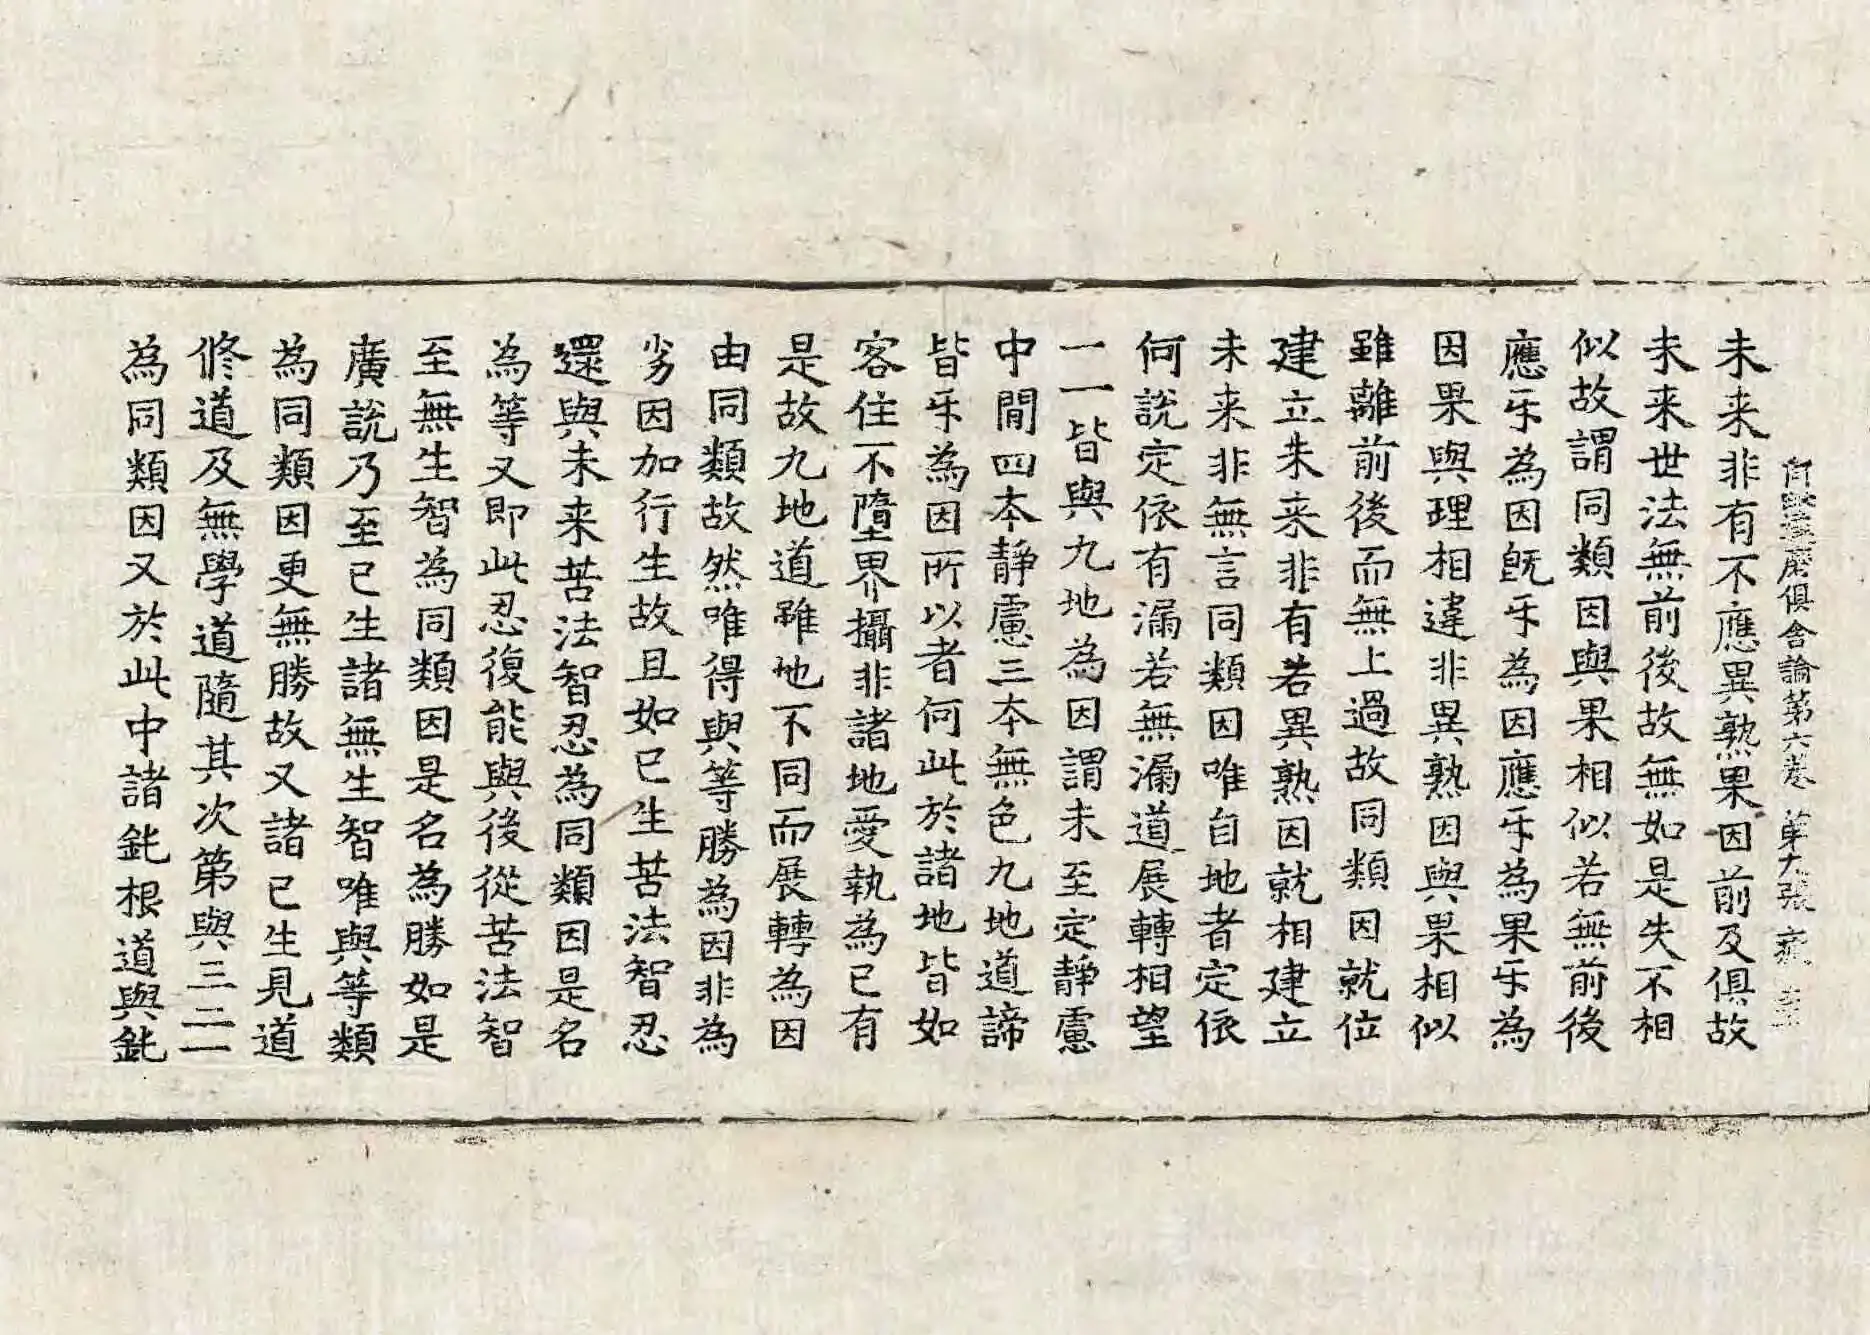 阿毗達磨俱舍論第六卷 第九張
未来非有不應異熟果因前及俱故
未来世法無前後故無如是失不相
似故謂同類因與果相似若無前後
應乐為因旣乐為因應乐為果乐為
因果與理相違非異熟因與果相似
雖離前後而無上過故同類因就位
建立未来非有若異熟因就相建立
未来非無言同類因唯自地者定依
何說定依有漏若無漏道展轉相望
一一皆與九地為因謂未至定靜慮
中閒四本靜慮三本無色九地道諦
皆乐為因所以者何此於諸地皆如
客住不墮界攝非諸地愛執為已有
是故九地道雖地不同而展轉為因
由同類故然唯得與等勝為因非為
劣因加行生故且如已生苦法智忍
還與未来苦法智忍為同類因是名
為等又即此忍復能與後從苦法智
至無生智為同類因是名為勝如是
廣說乃至已生諸無生智唯與等類
為同類因更無勝故又諸已生見道
修道及無學道隨其次第與三二一
為同類因又於此中諸鈍根道與鈍